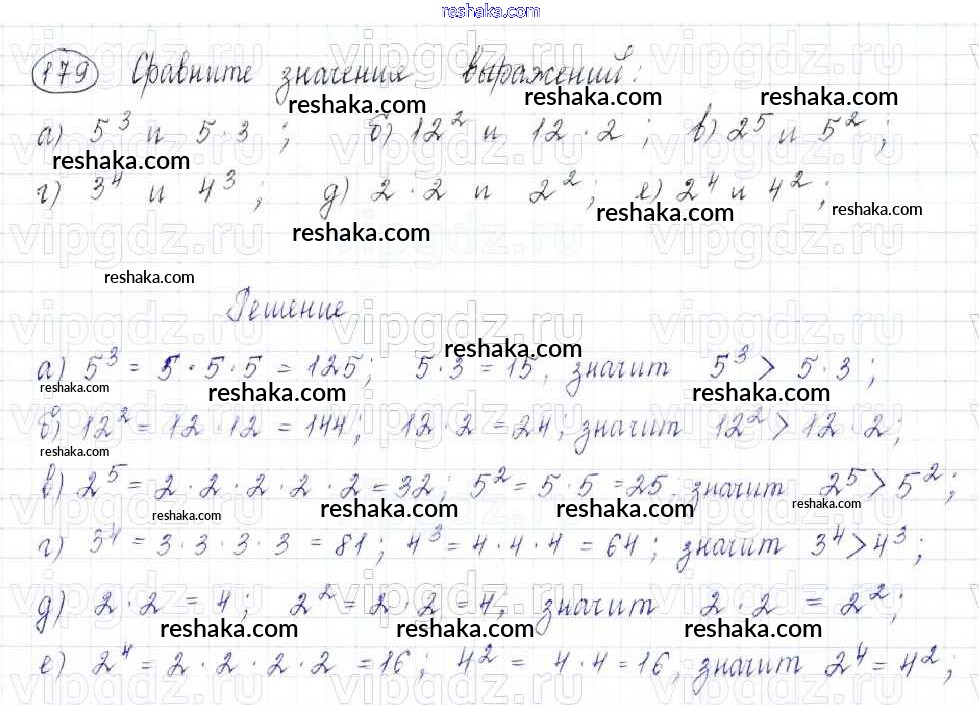 reshaka.com
179 Сравните значения выражений:
reshaka.com reshaka.com reshaka.com
а) 5³ и 5·3 ; б) 12² и 12·2 ; в) 2⁵ и 5² ;
reshaka.com
г) 3⁴ и 4³ ; д) 2·2 и 2² ; е) 2⁴ и 4² ;
reshaka.com reshaka.com reshaka.com
vipgdz.ru vipgdz.ru vipgdz.ru
reshaka.com
Решение
vipgdz.ru vipgdz.ru vipgdz.ru
reshaka.com
а) 5³ = 5·5·5 = 125; 5·3 = 15, значит 5³ > 5·3 ;
reshaka.com reshaka.com reshaka.com
б) 12² = 12·12 = 144; 12·2 = 24; значит 12² > 12·2;
reshaka.com
в) 2⁵ = 2·2·2·2·2 = 32; 5² = 5·5 = 25, значит 2⁵ > 5² ;
reshaka.com reshaka.com reshaka.com reshaka.com
г) 3⁴ = 3·3·3·3 = 81; 4³ = 4·4·4 = 64; значит 3⁴ > 4³ ;
д) 2·2 = 4; 2² = 2·2 = 4, значит 2·2 = 2² ;
reshaka.com reshaka.com reshaka.com
е) 2⁴ = 2·2·2·2 = 16; 4² = 4·4 = 16, значит 2⁴ = 4² ;